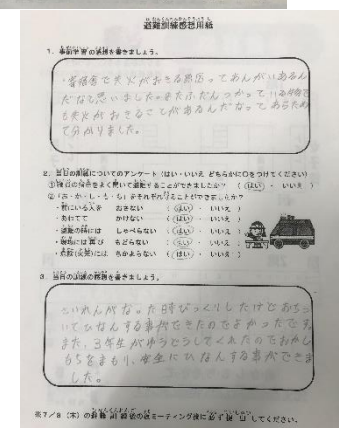 避難訓練感想用紙
1. 事前学習の感想を書きましょう。
・宿舎で火災がおきる原因ってあんがいあるん
だなと思いました。またふだんつかっている物で
も火災がおきることがあるんだなってあらため
て分かりました。
2. 当日の訓練についてのアンケート（はい・いいえ どちらかに○をつけてください）
①職員の指示をよく聞いて避難することができましたか？ （はい ・ いいえ）
②「お・か・し・も・ち」をそれぞれ守ることができましたか？
・前にいる人を おさない （はい ・ いいえ）
・あわてて かけない （はい ・ いいえ）
・避難の時には しゃべらない （はい ・ いいえ）
・現場には再び もどらない （はい ・ いいえ）
・危険(火災)には ちかよらない （はい ・ いいえ）
3. 当日の訓練の感想を書きましょう。
いれんがなった時びっくりしたけどおちつ
いてひなんする事ができたのでよかったです。
また、3年生がゆうどうしてくれたのでおかし
もちをまもり、安全にひなんする事ができま
した。
※7／9（木）の避難訓練後のミーティング後に
してください。